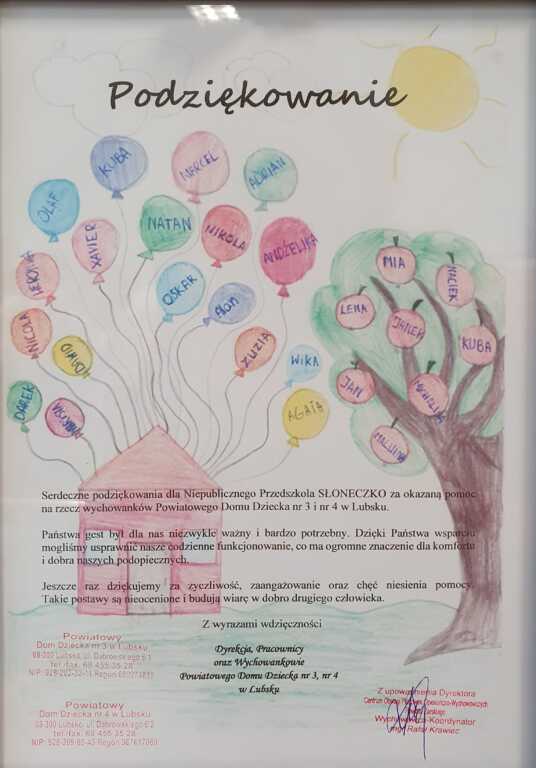 Podziękowanie
KUBA
MARCEL
ADRIAN
OLAF
XAVIER
NATAN
NIKOLA
ANDŻELIKA
OSKAR
Alan
NICOLA
DAWID
ZUZIA
WIKA
DAREK
AGATA
MIA
MACIEK
LENA
JANEK
KUBA
JAN
MALWINA
Serdeczne podziękowania dla Niepublicznego Przedszkola SŁONECZKO za okazaną pomoc
na rzecz wychowanków Powiatowego Domu Dziecka nr 3 i nr 4 w Lubsku.
Państwa gest był dla nas niezwykle ważny i bardzo potrzebny. Dzięki Państwa wsparciu
mogliśmy usprawnić nasze codzienne funkcjonowanie, co ma ogromne znaczenie dla komfortu
i dobra naszych podopiecznych.
Jeszcze raz dziękujemy za życzliwość, zaangażowanie oraz chęć niesienia pomocy.
Takie postawy są nieocenione i budują wiarę w dobro drugiego człowieka.
Z wyrazami wdzięczności
Dyrekcja, Pracownicy
oraz Wychowankowie
Powiatowego Domu Dziecka nr 3, nr 4
w Lubsku
Powiatowy
Dom Dziecka nr 3 w Lubsku
68-300 Lubsko, ul. Dąbrowskiego 6 1
tel./fax. 68 455 35 28
Powiatowy
Dom Dziecka nr 4 w Lubsku
68-300 Lubsko, ul. Dąbrowskiego 6 2
tel./fax. 68 455 35 28
Z upoważnienia Dyrektora
Wychowawca-Koordynator
mgr Rafał Krawiec